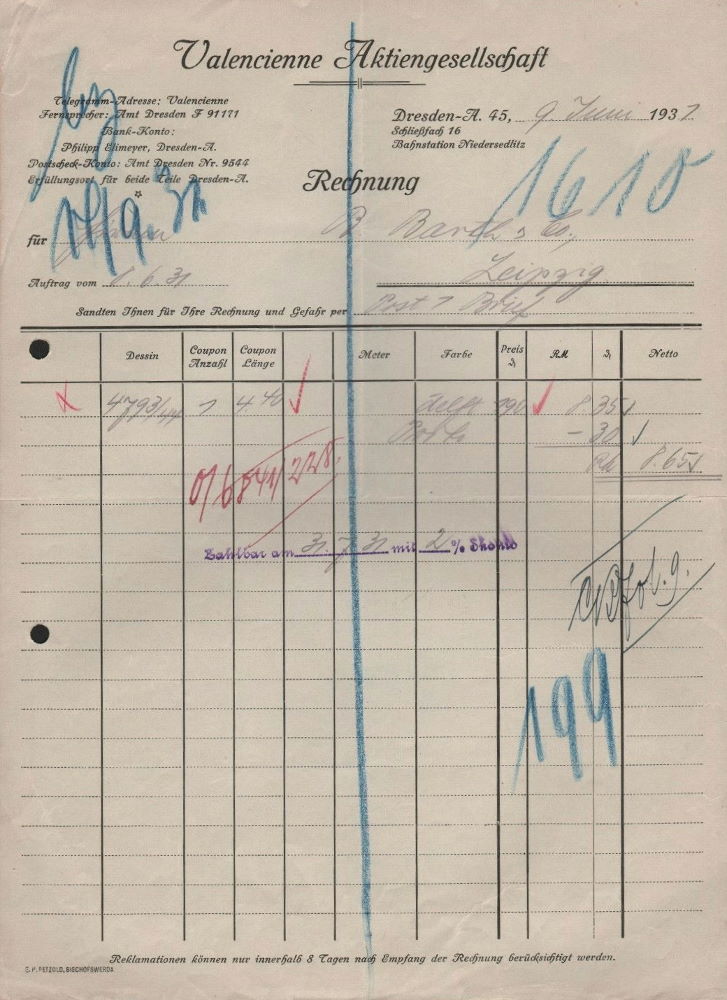 Valencienne Aktiengesellschaft
Telegramm-Adresse: Valencienne
Fernsprecher: Amt Dresden F 91171
Bank-Konto:
Philipp Elimeyer, Dresden-A.
Postscheck-Konto: Amt Dresden Nr. 9544
Erfüllungsort für beide Teile Dresden-A.
Dresden-A. 45, 9. Juni 1931
Schließfach 16
Bahnstation Niedersedlitz
1610
Rechnung
für B. Barth & Co,
Leipzig
Auftrag vom 8.6.31
Sandten Ihnen für Ihre Rechnung und Gefahr per Post 1 Brief
Dessin Coupon Anzahl Coupon Länge Meter Farbe Preis ₰ RM ₰ Netto
4793/44 1 4.40 delft 190 8 35
Porto - 30
RM 8.65
Zahlbar am 31.7.31 mit 2 % Skonto
199
Reklamationen können nur innerhalb 8 Tagen nach Empfang der Rechnung berücksichtigt werden.
C. P. PETZOLD, BISCHOFSWERDA